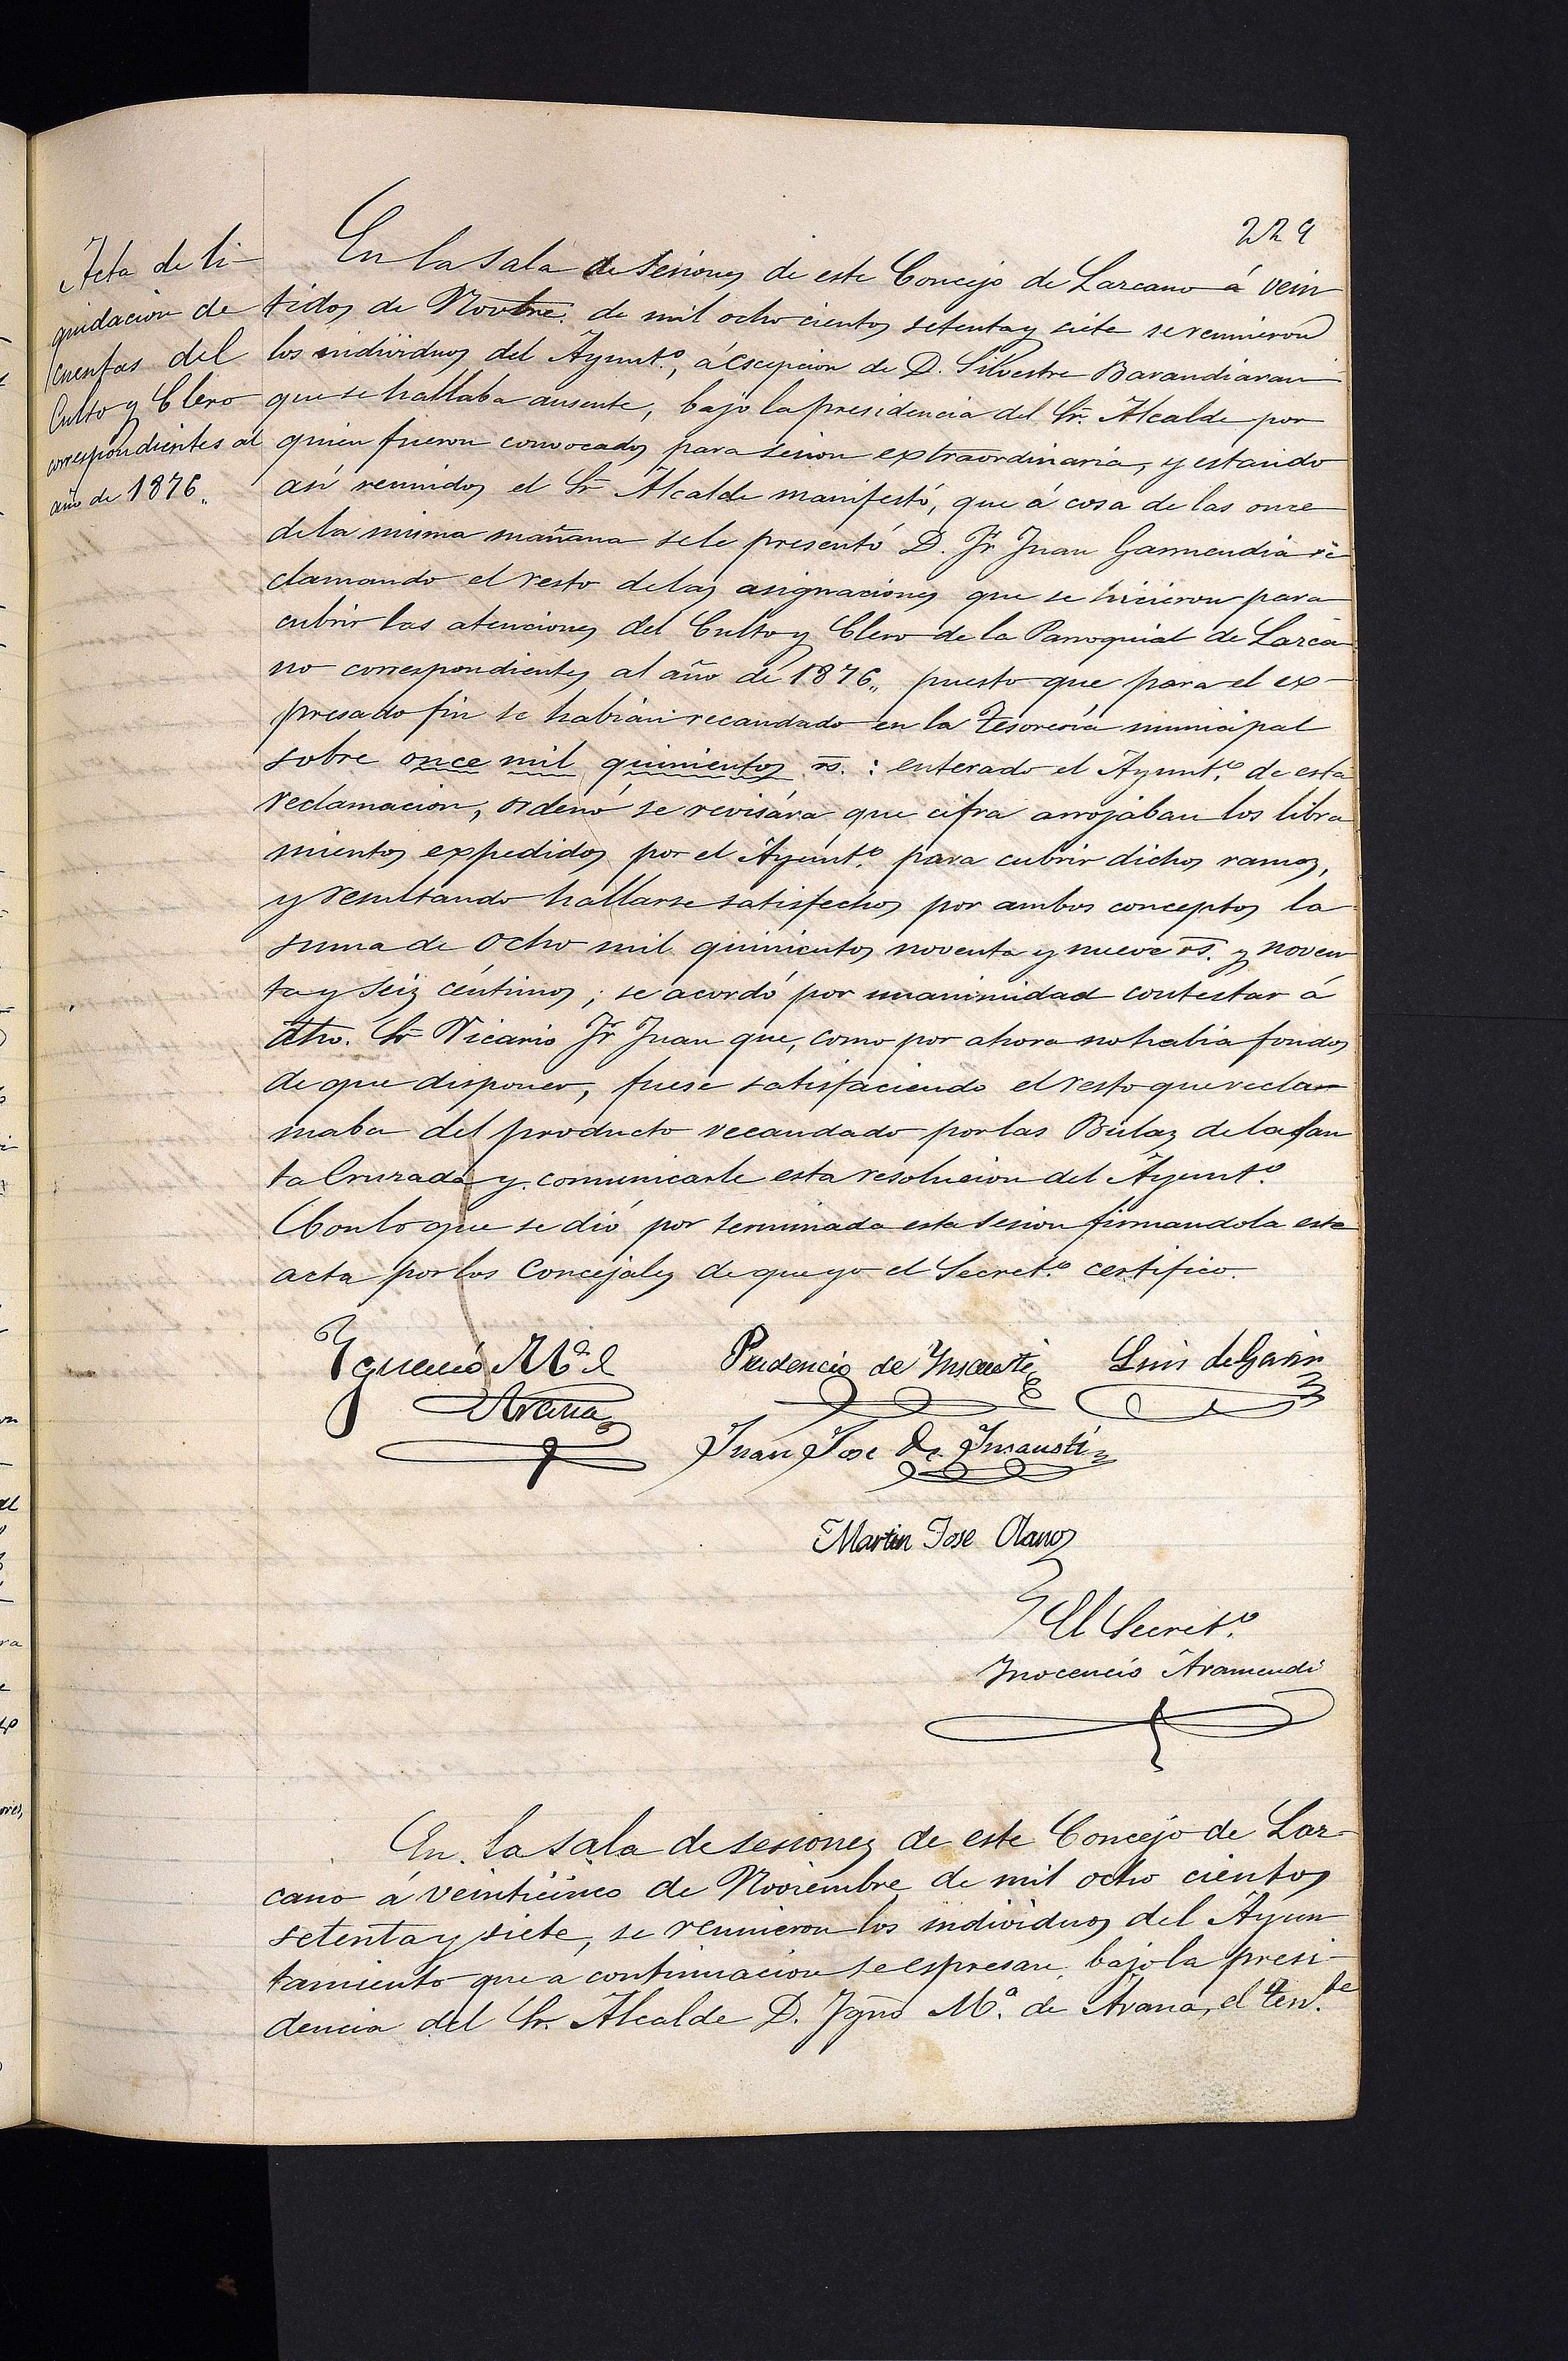 229
Acta de li-
quidacion de
cuentas del
Culto y Clero
correspondientes al
año de 1876„
En la sala de sesiones de este Concejo de Lazcano á vein
tidos de Novbre. de mil ocho cientos setenta y siete se reunieron
los individuos del Ayunt.º, á escepcion de D. Silvestre Barandiaran
que se hallaba ausente, bajo la presidencia del Sr. Alcalde por
quien fueron convocados para sesion extraordinaria, y estando
asi reunidos el Sr Alcalde manifestó, que á cosa de las once
de la misma mañana se le presentó D. Fr Juan Garmendia re
clamando el resto de las asignaciones que se hicieron para
cubrir las atenciones del Culto y Clero de la Parroquial de Lazca
no correspondientes al año de 1876„ puesto que para el ex-
presado fin se habian recaudado en la Tesoreria municipal
sobre once mil quinientos rs. : enterado el Ayunt.º de esta
reclamacion, ordenó se revisára que cifra arrojaban los libra
mientos expedidos por el Ayunt.º para cubrir dichos ramos,
y resultando hallarse satisfechos por ambos conceptos la
suma de ocho mil quinientos noventa y nueve rs. y noven
ta y seis céntimos; se acordó por unanimidad contestar á
dho. Sr Vicario Fr Juan que, como por ahora no habia fondos
de que disponer, fuese satisfaciendo el resto que recla-
maba del producto recaudado por las Bulas de la San
ta Cruzada y comunicarle esta resolucion del Ayunt.º
Con lo que se dió por terminada esta sesion firmandola esta
acta por los Concejales de que yo el Secret.º certifico.
Ygnacio M.ª d
Arana
Prudencio de Ynsausti
Luis de Garin
Juan Jose de Insausti
Martin Jose Olano
El Secret.º
Inocencio Aramendi
En la sala de sesiones de este Concejo de Laz-
cano á veinticinco de Noviembre de mil ocho cientos
setenta y siete, se reunieron los individuos del Ayun
tamiento que a continuacion se espresan, bajo la presi-
dencia del Sr. Alcalde D. Ygno M.ª de Arana, el Ten.te